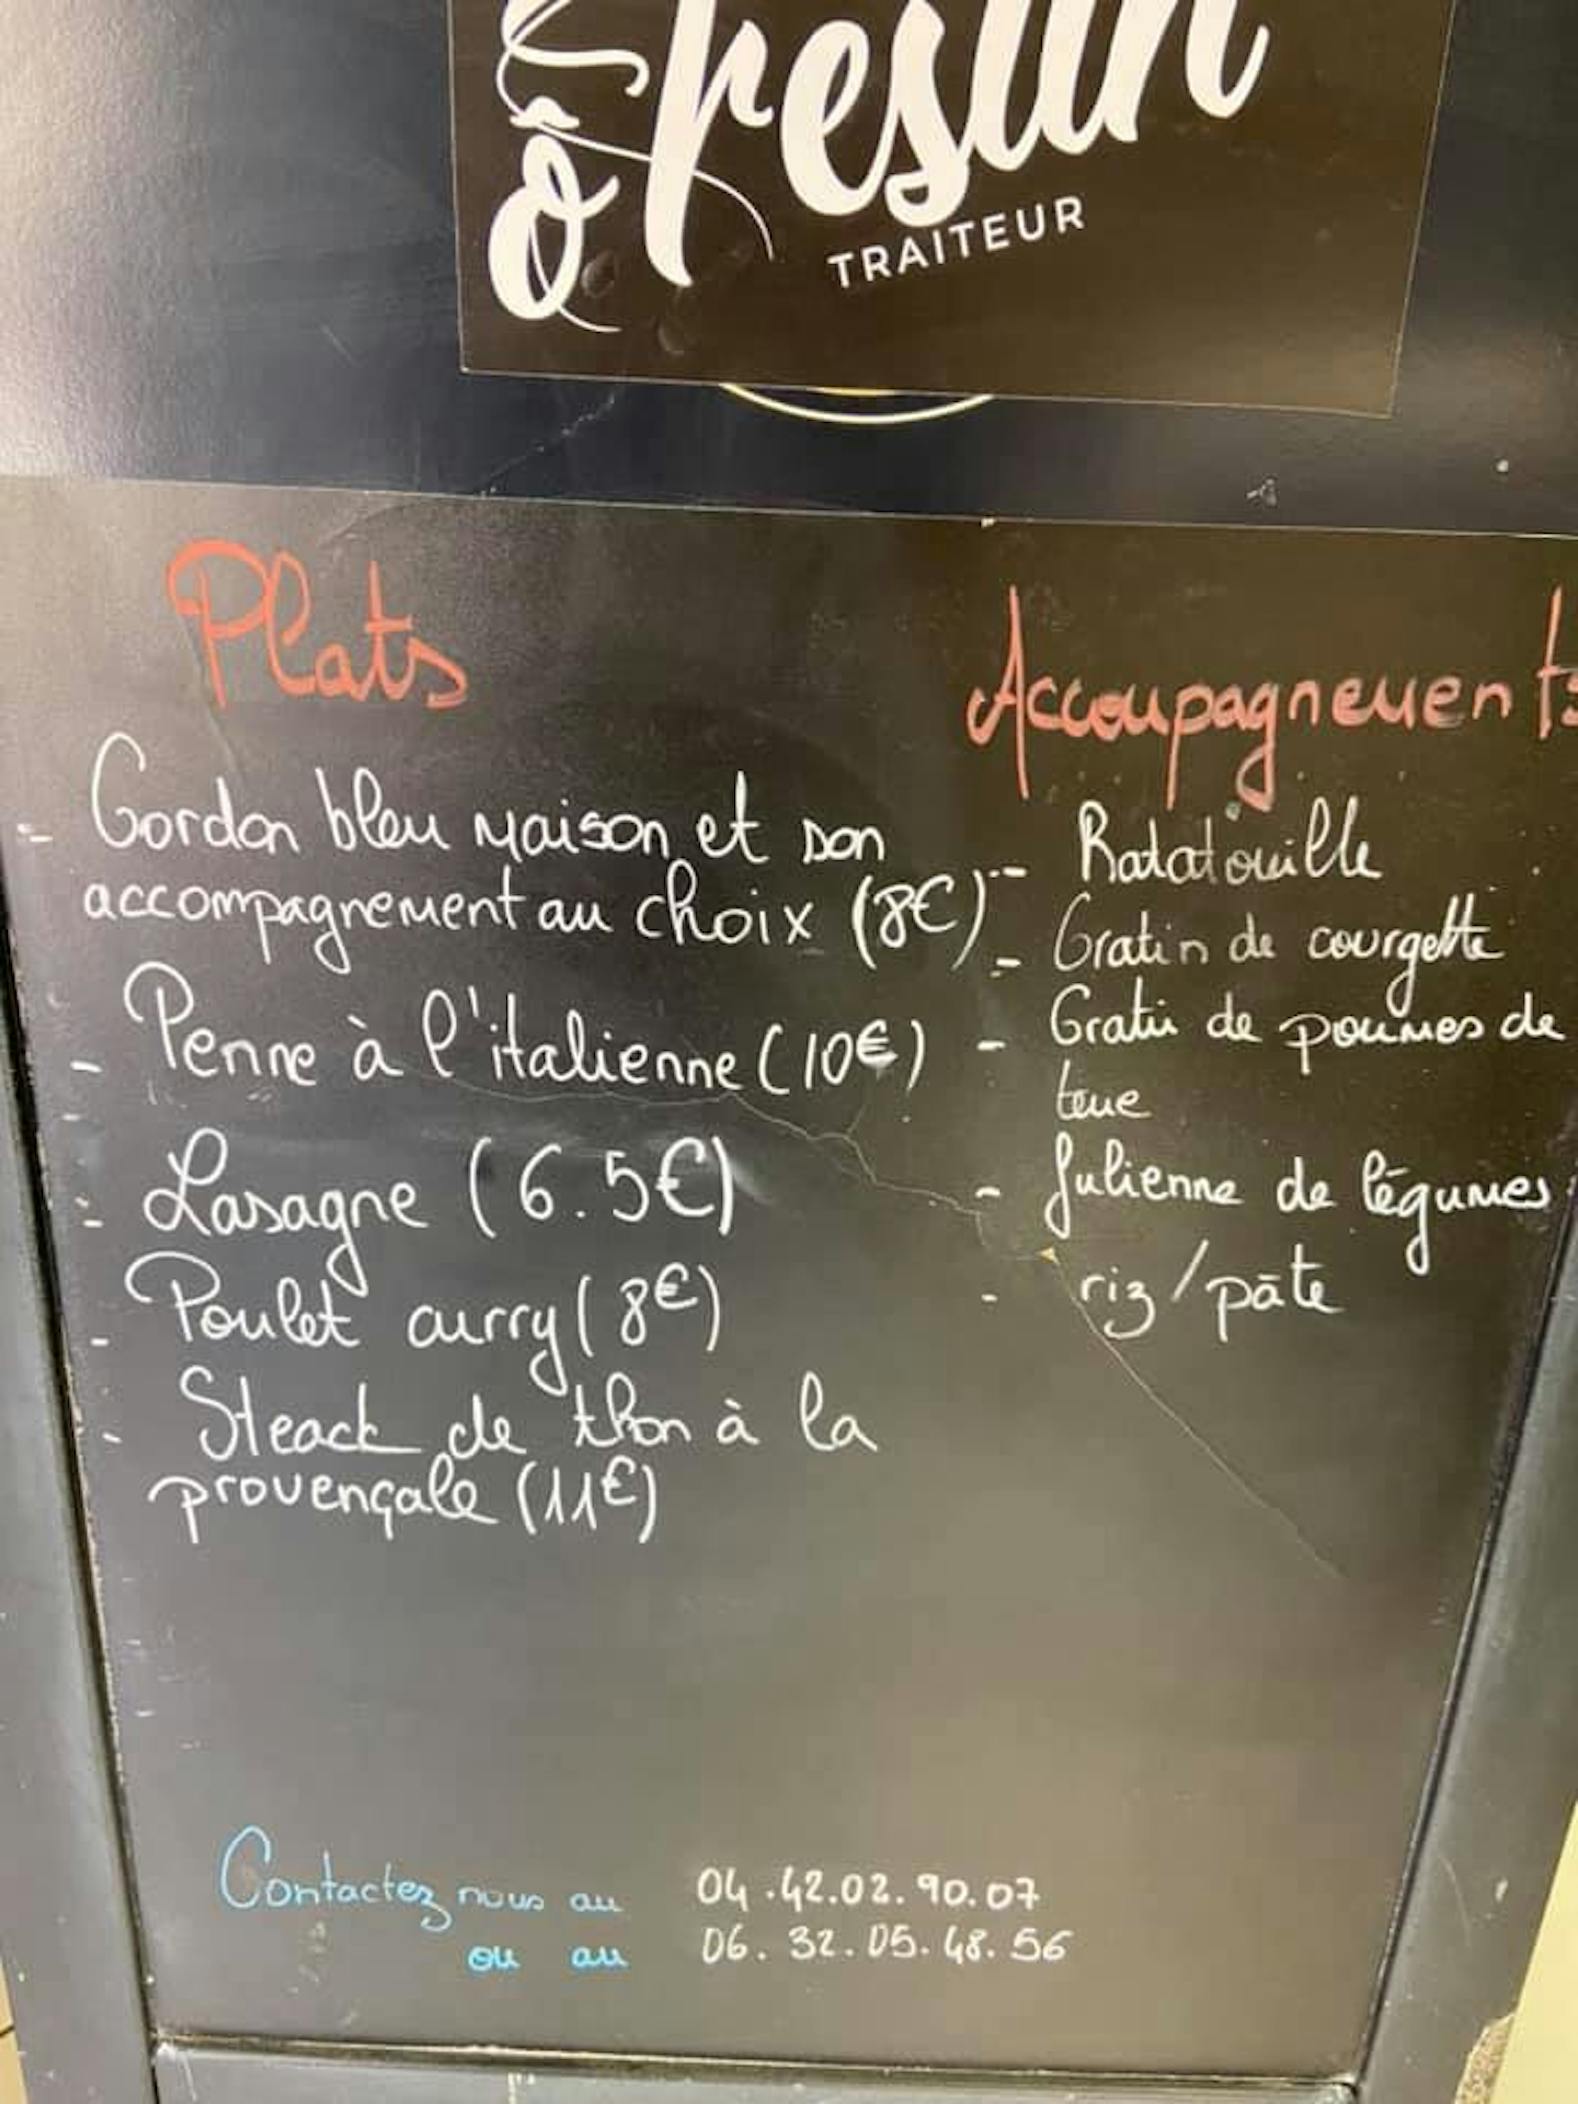 Ô Festin
TRAITEUR
Plats
- Cordon bleu maison et son
accompagnement au choix (8€)
- Penne à l'italienne (10€)
- Lasagne (6.5€)
- Poulet curry (8€)
- Steack de thon à la
provençale (11€)
Accompagnements
- Ratatouille
- Gratin de courgette
- Gratin de pommes de
terre
- Julienne de légumes
- riz/pâte
Contactez nous au 04.42.02.90.07
ou au 06.32.05.48.56